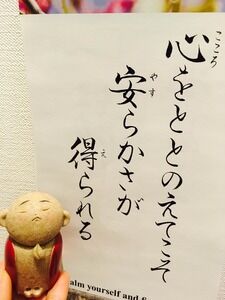 心をととのえてこそ
こころ
安らかさが
やす
得られる
え
alm yourself and